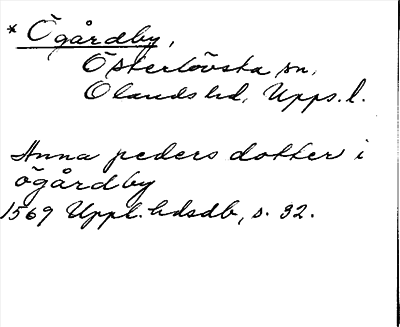 * Ögårdby,
Österlövsta sn,
Olands hd, Upps. l.
Anna peders dotter i
ögårdby
1569 Uppl. hdsdb, s. 92.